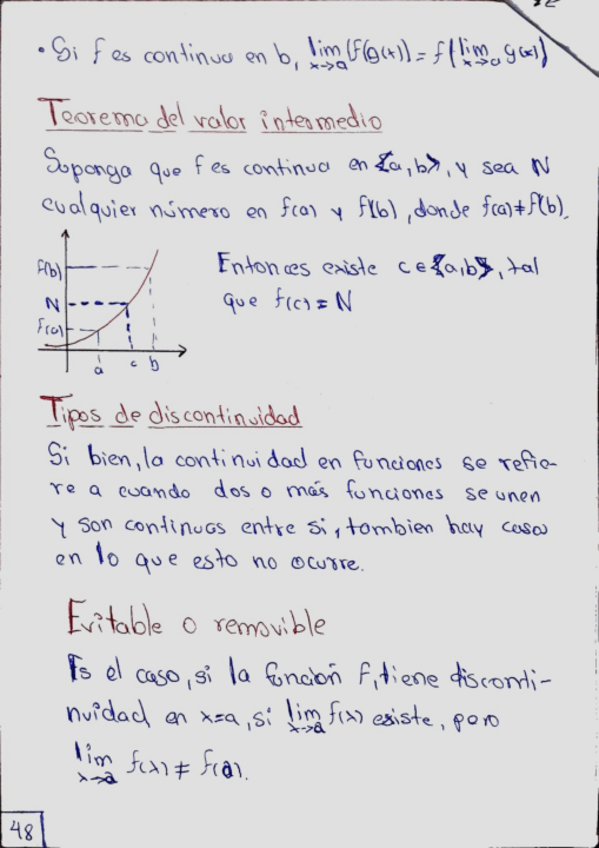 • Si f es continua en b, lim x→a (f(g(x)) = f(lim x→a g(x))
Teorema del valor intermedio
Suponga que f es continua en <a,b>, y sea N
cualquier número en f(a) y f(b), donde f(a)≠f(b).
Entonces existe c ∈ <a,b>, tal
que f(c) = N
f(b)
N
f(a)
a c b
Tipos de discontinuidad
Si bien, la continuidad en funciones se refie-
re a cuando dos o más funciones se unen
y son continuas entre si, tambien hay casos
en lo que esto no ocurre.
Evitable o removible
Es el caso, si la función f, tiene disconti-
nuidad en x=a, si lim x→a f(x) existe, pero
lim x→a f(x) ≠ f(a).
48